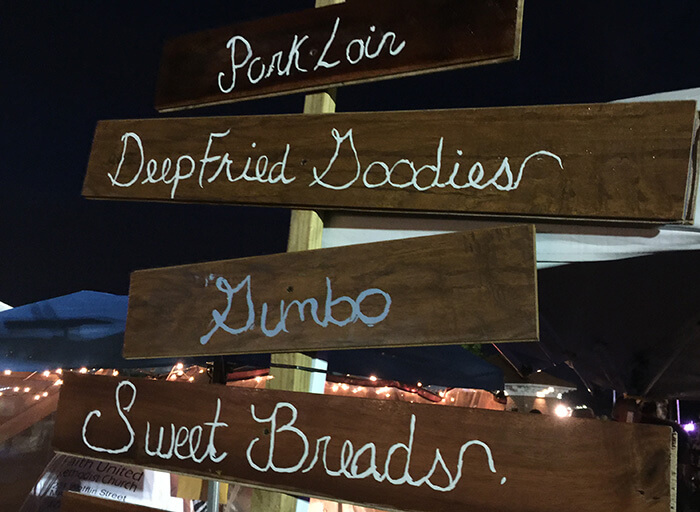 Pork Loin
Deep Fried Goodies
Gumbo
Sweet Breads.
United
Church
Street